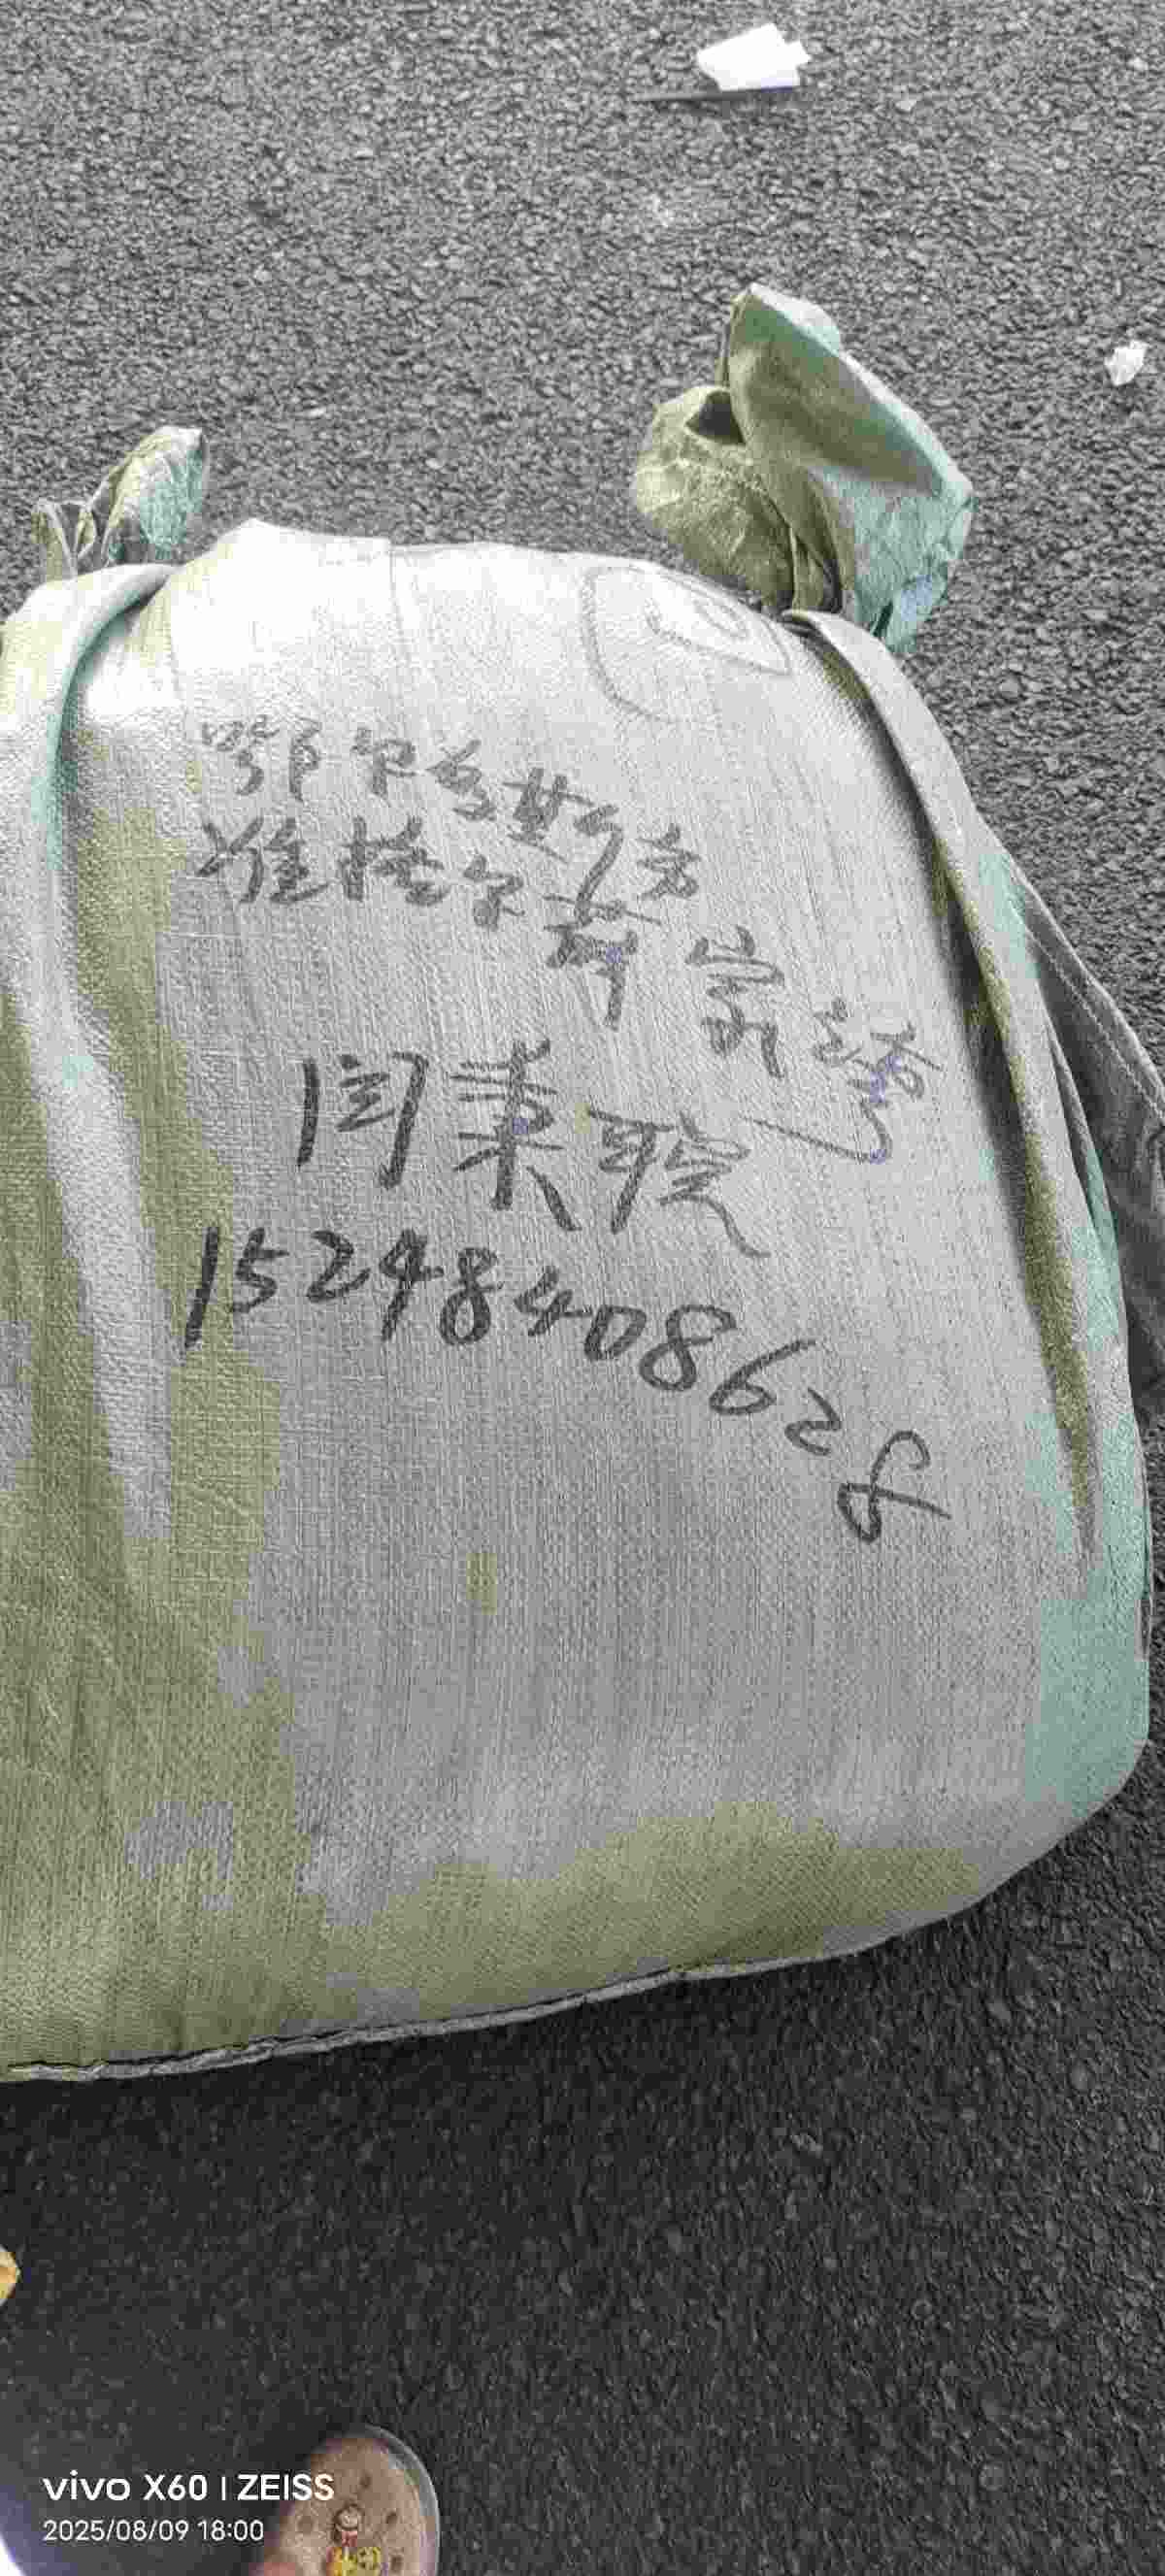 鄂尔多斯市
准格尔旗
闫秉
15248408628
vivo X60 | ZEISS
2025/08/09 18:00